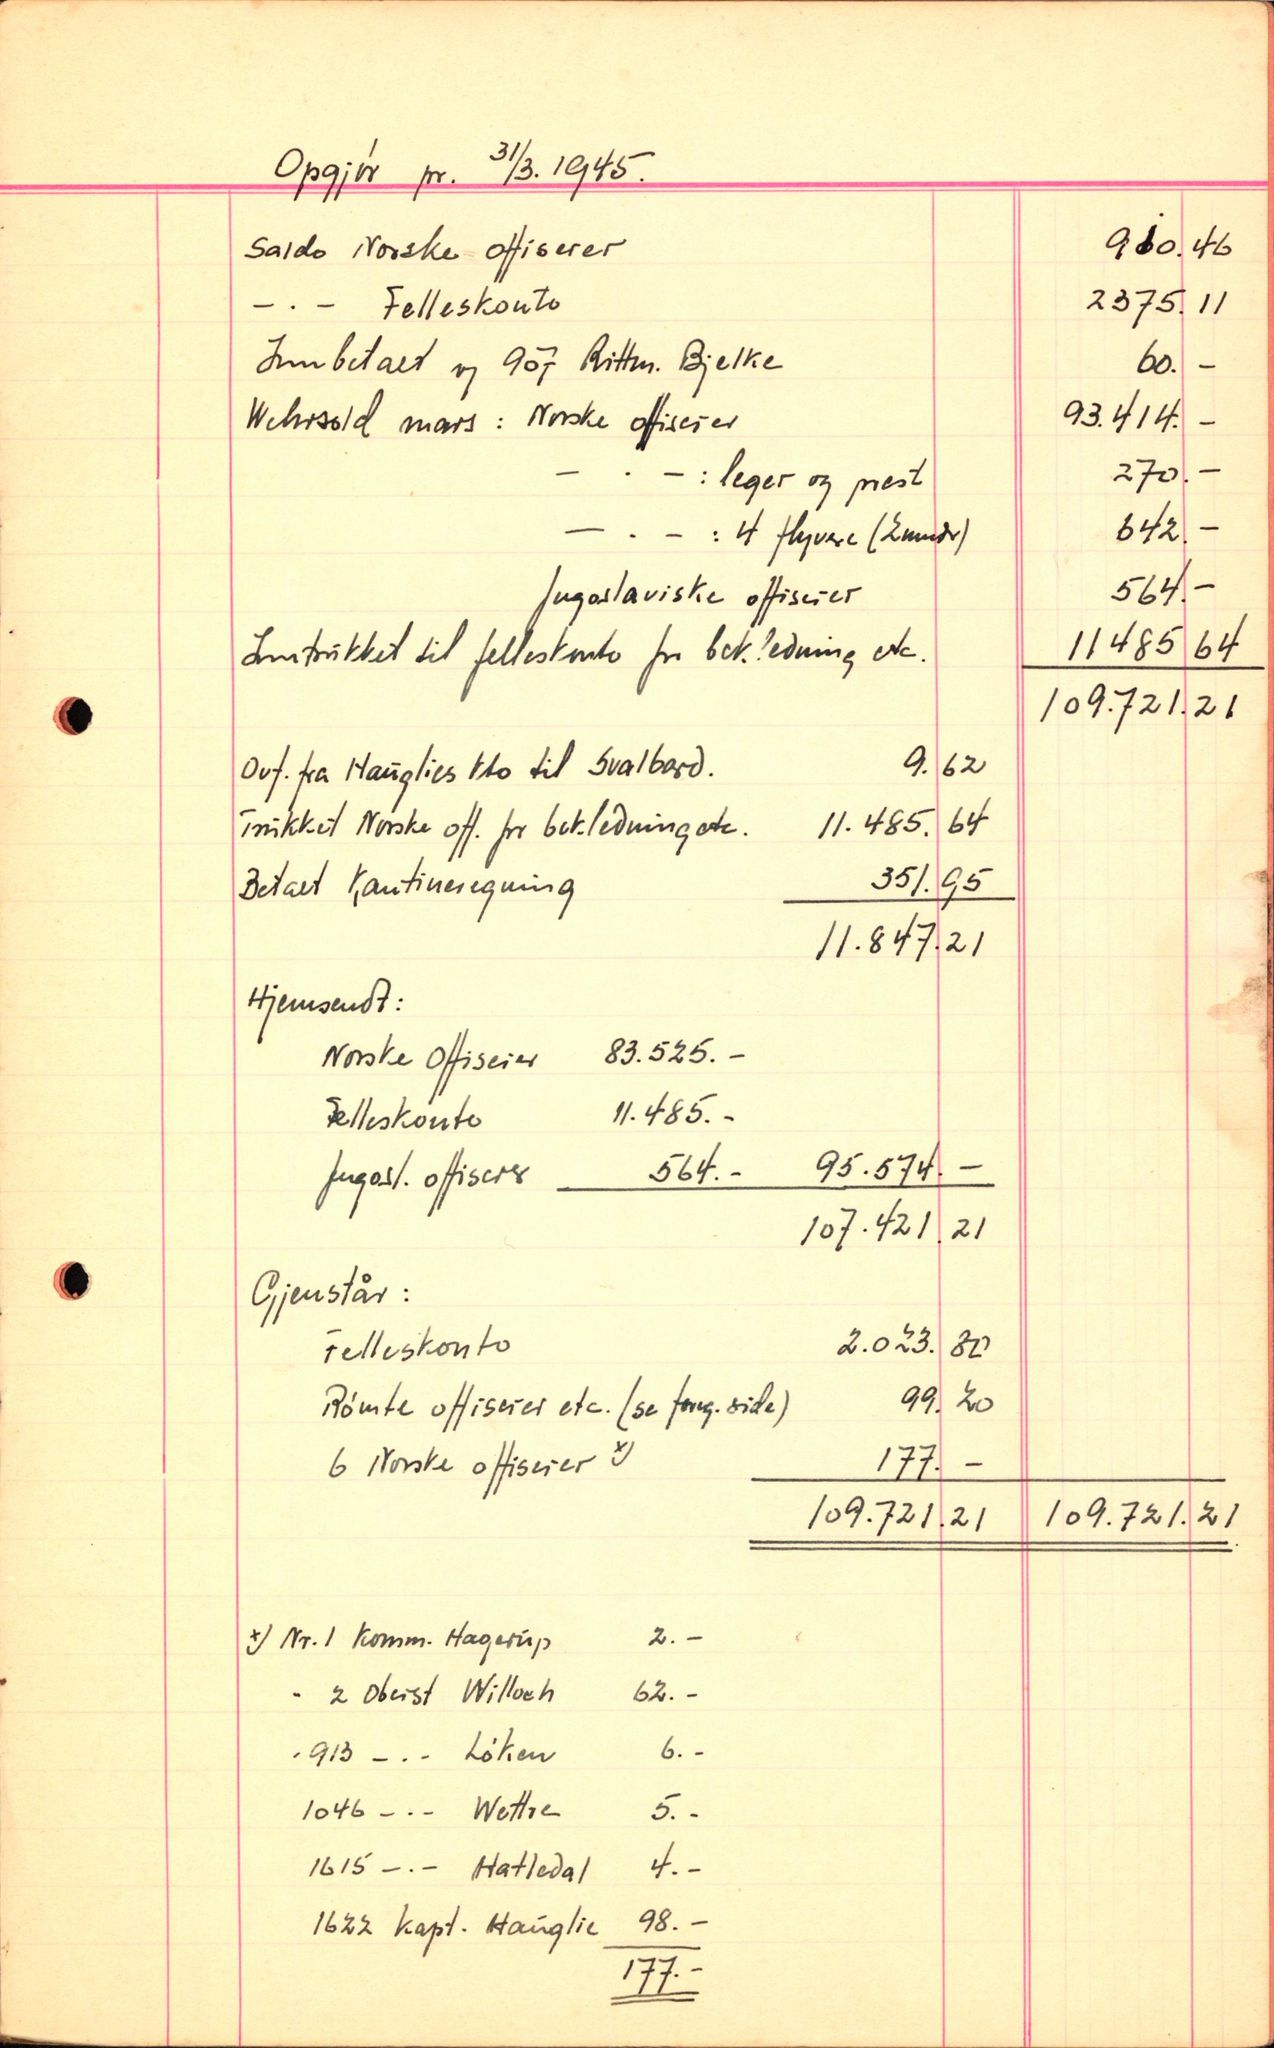 Opgjör pr. 31/3. 1945.
Saldo Norske offiserer 910.46
— . — Felleskonto 2375.11
Innbetalt av 907 Rittm. Bjelke 60. –
Wehrsold mars : Norske offiserer 93.414. –
— . — : leger og prest 270. –
— . — : 4 flyvere 642. –
Jugoslaviske offiserer 564. –
Inntrukket til felleskonto for bekledning etc. 11485 64
109.721.21
Ovf. fra Hauglies kto til Svalbard. 9.62
Trukket Norske off. for bekledning etc. 11.485.64
Betalt Kantineregning 351.95
11.847.21
Hjemsendt:
Norske Offiserer 83.525. –
Felleskonto 11.485. –
Jugosl. offiserer 564. – 95.574. –
107.421.21
Gjenstår :
Felleskonto 2.023.80
Römte offiserer etc. (se foreg. side) 99.20
6 Norske offiserer x) 177. –
109.721.21 109.721.21
x) Nr. 1 Komm. Hagerup 2. –
" 2 Oberst Willoch 62. –
" 913 — . — Löken 6. –
1046 — . — Wettre 5. –
1615 — . — Hatledal 4. –
1622 Kapt. Hauglie 98. –
177. –